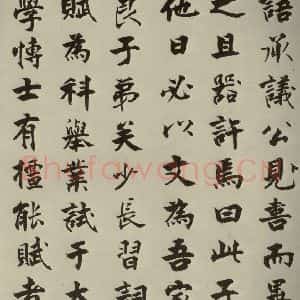 語承議公見喜而
之且器許焉曰此子
他日必以文為吾
良子弟美少長習詞
賦為科舉業試于太
學博士有擅能賦者
Shufawang.cn